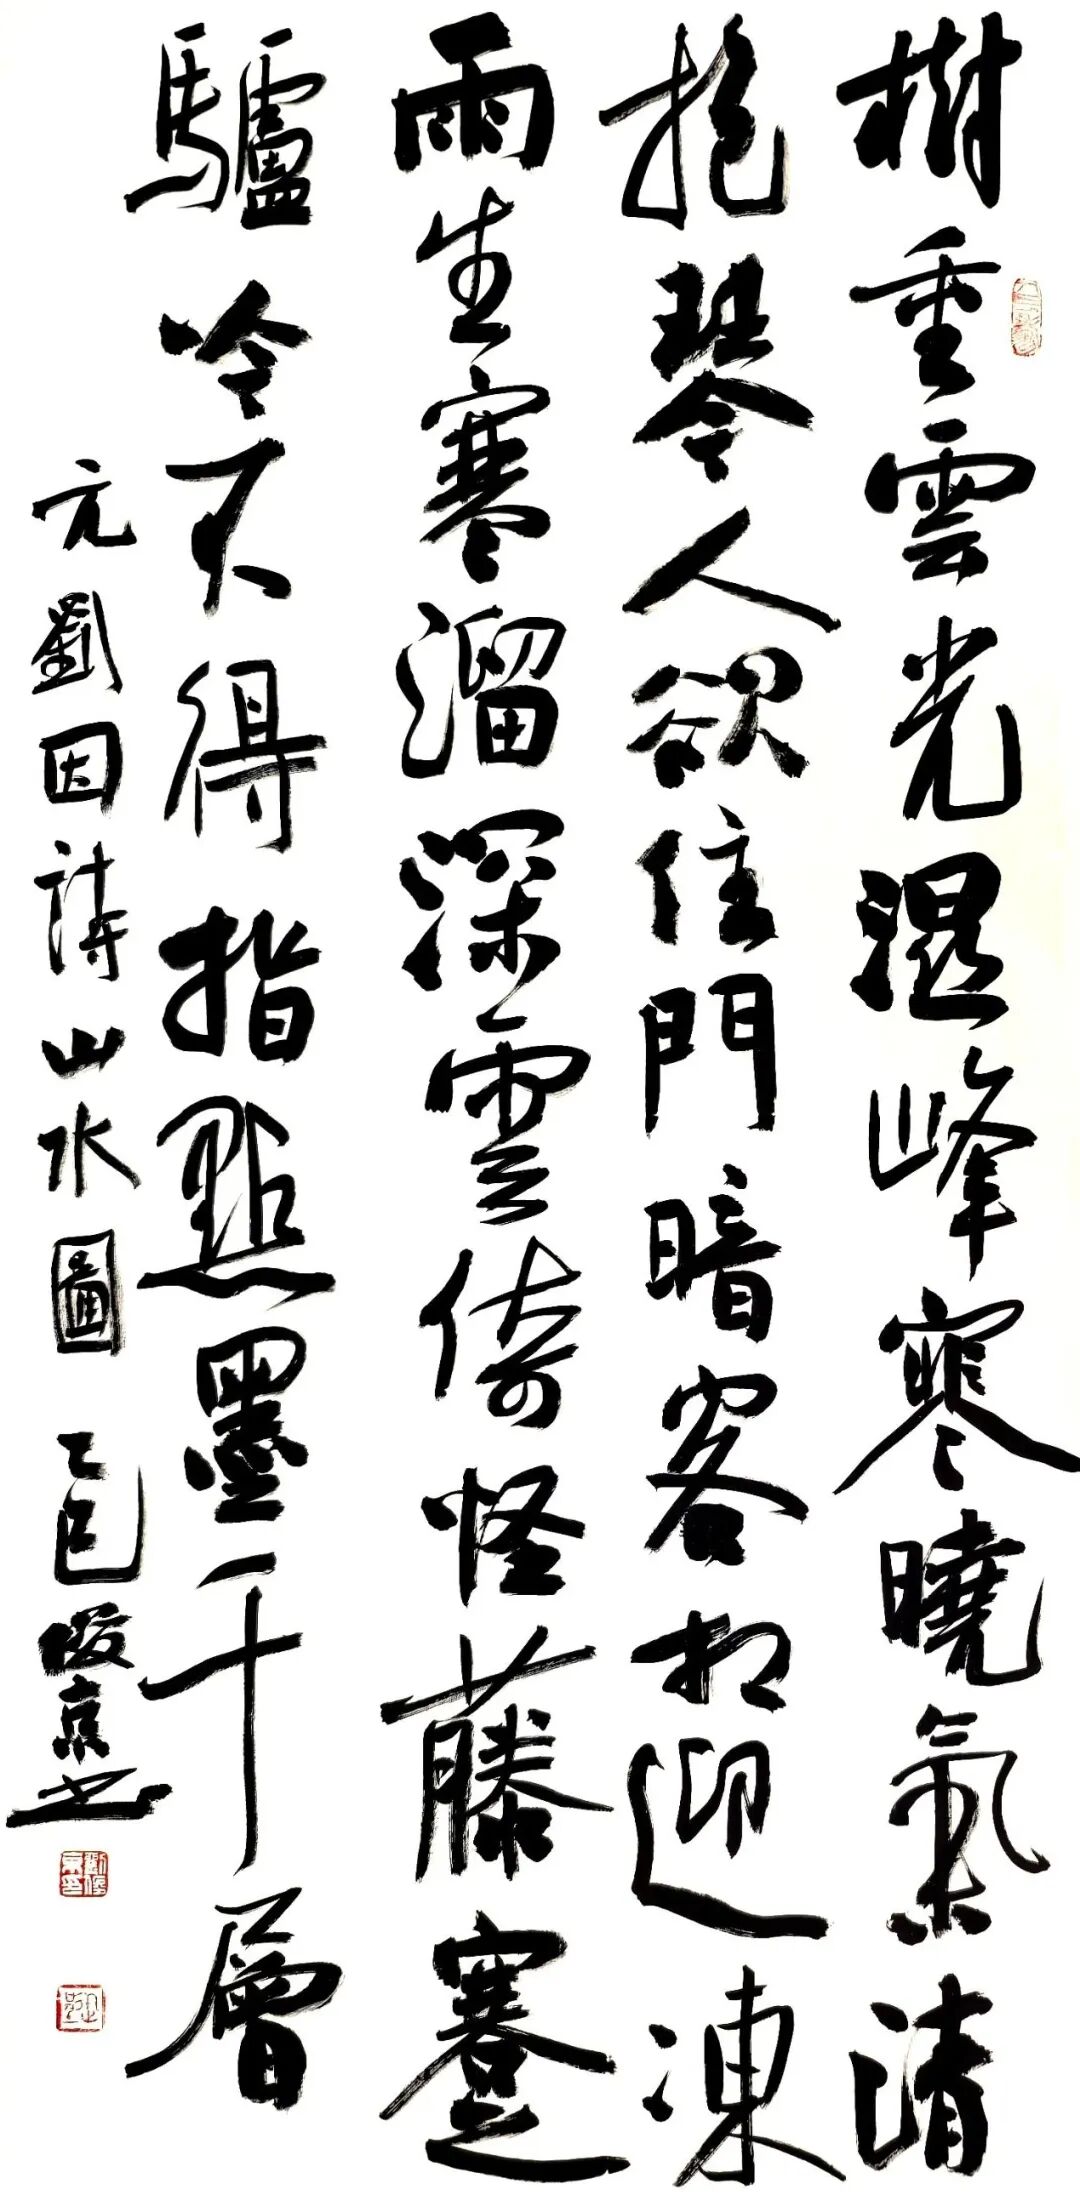 樹重雲光濕峰寒曉氣清
抱琴人欲住門暗客相迎凍
雨生寒溜深雲倚怪藤蹇
驢吟不得指點墨千層
元劉因詩山水圖 乙巳俊京书
劉俊京印